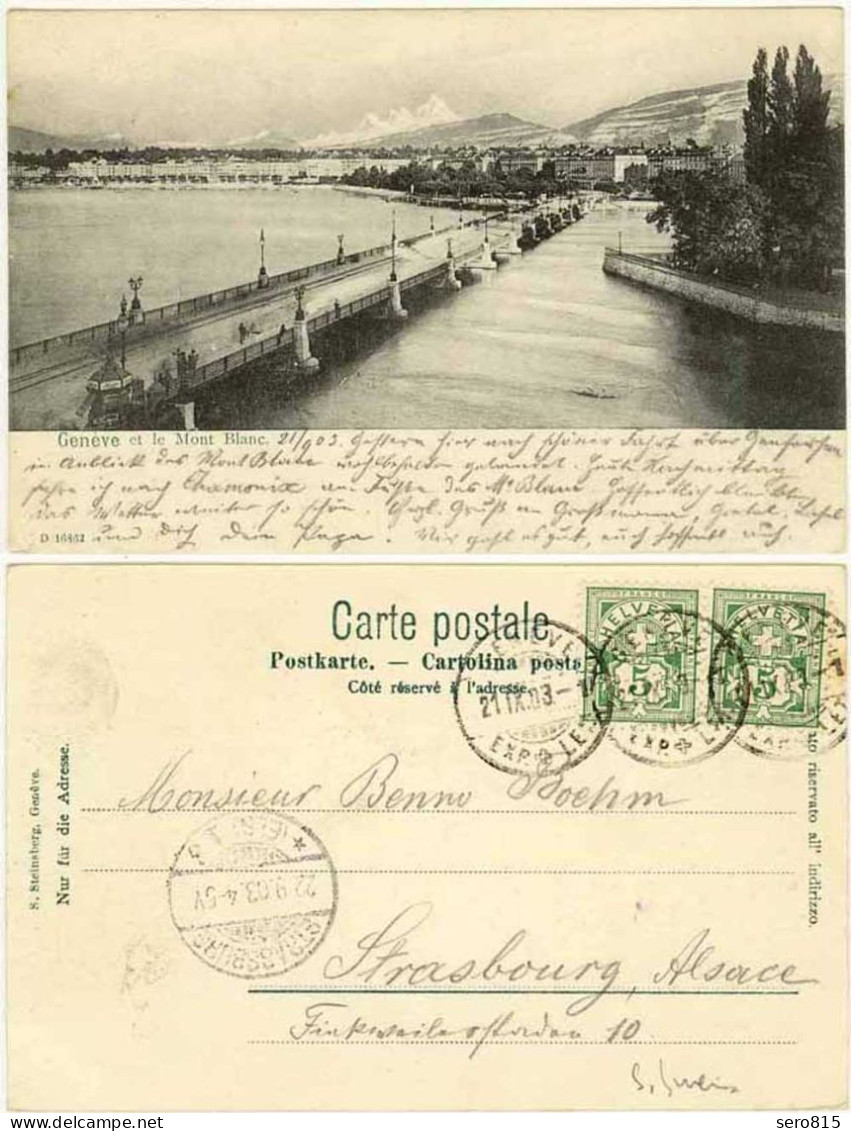 Genève et le Mont Blanc. 21/9 03. Gestern hier nach schöner Fahrt über Genfersee
im Anblick des Mont Blanc wohlbehalten gelandet. Heute Nachmittag
fahre ich nach Chamonix am Fuße des Mt Blanc. Hoffentlich bleibt
das Wetter weiter so schön. Herzl. Gruß an Großmama
D 16862 und Dich Dein Papa. Mir geht es gut, euch hoffentl. auch.
Carte postale
Postkarte. — Cartolina posta
Côté réservé à l'adresse.
FRANCO
HELVETIA
5
FRANCO
HELVETIA
5
GENÈVE
21 IX.03
EXP. LE
S. Steinsberg, Genève.
Nur für die Adresse.
ato riservato all' indirizzo.
Monsieur Benno Boehm
22.9.03.4-5V
Strasbourg, Alsace
Finkweilerstaden 10
sero815